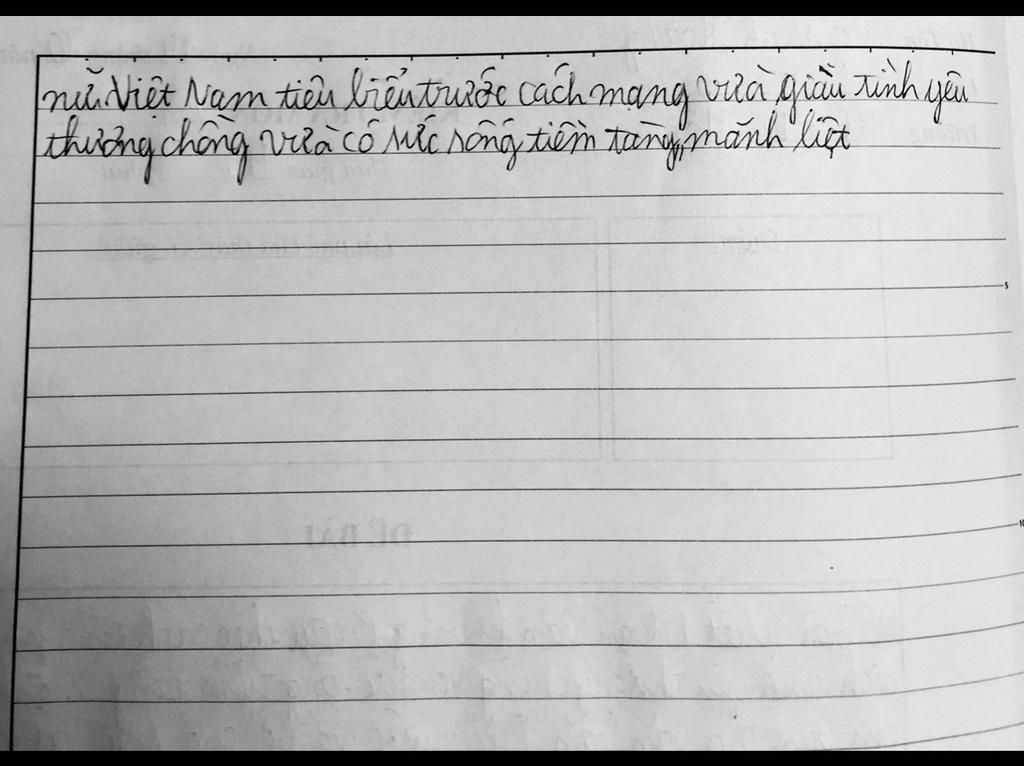 nữ Việt Nam tiêu biểu trước cách mạng vừa giàu tình yêu
thương chồng vừa có sức sống tiềm tàng, mãnh liệt
5
10
ĐỀ BÀI